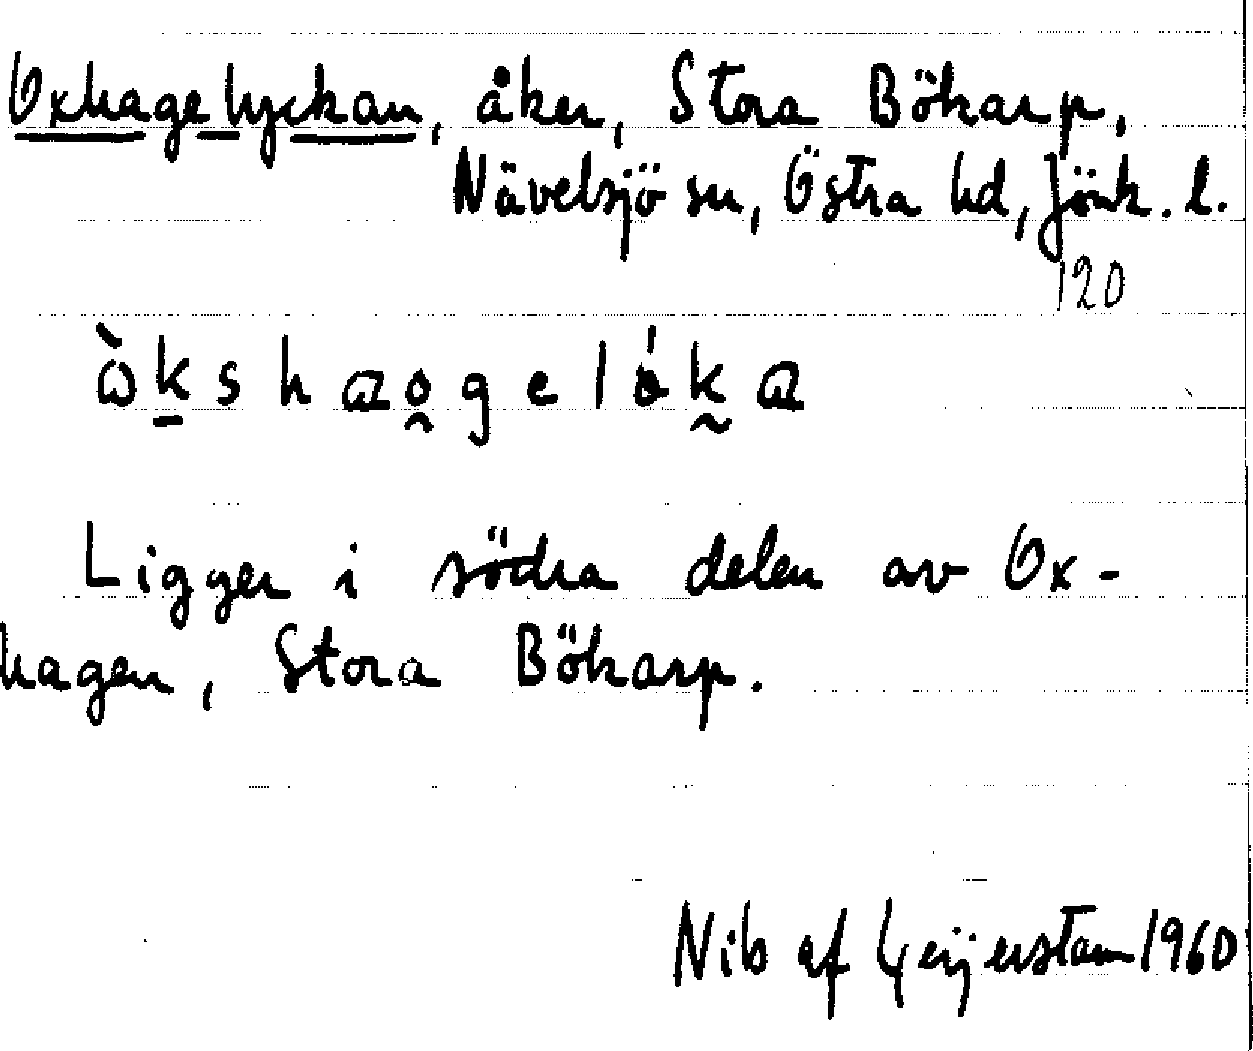 Oxhagelyckan, åker, Stora Bökarp,
Nävelsjö sn, Östra hd, Jönk. l.
120
Ligger i södra delen av Ox-
hagen, Stora Bökarp.
Nils af Geijerstam 1960